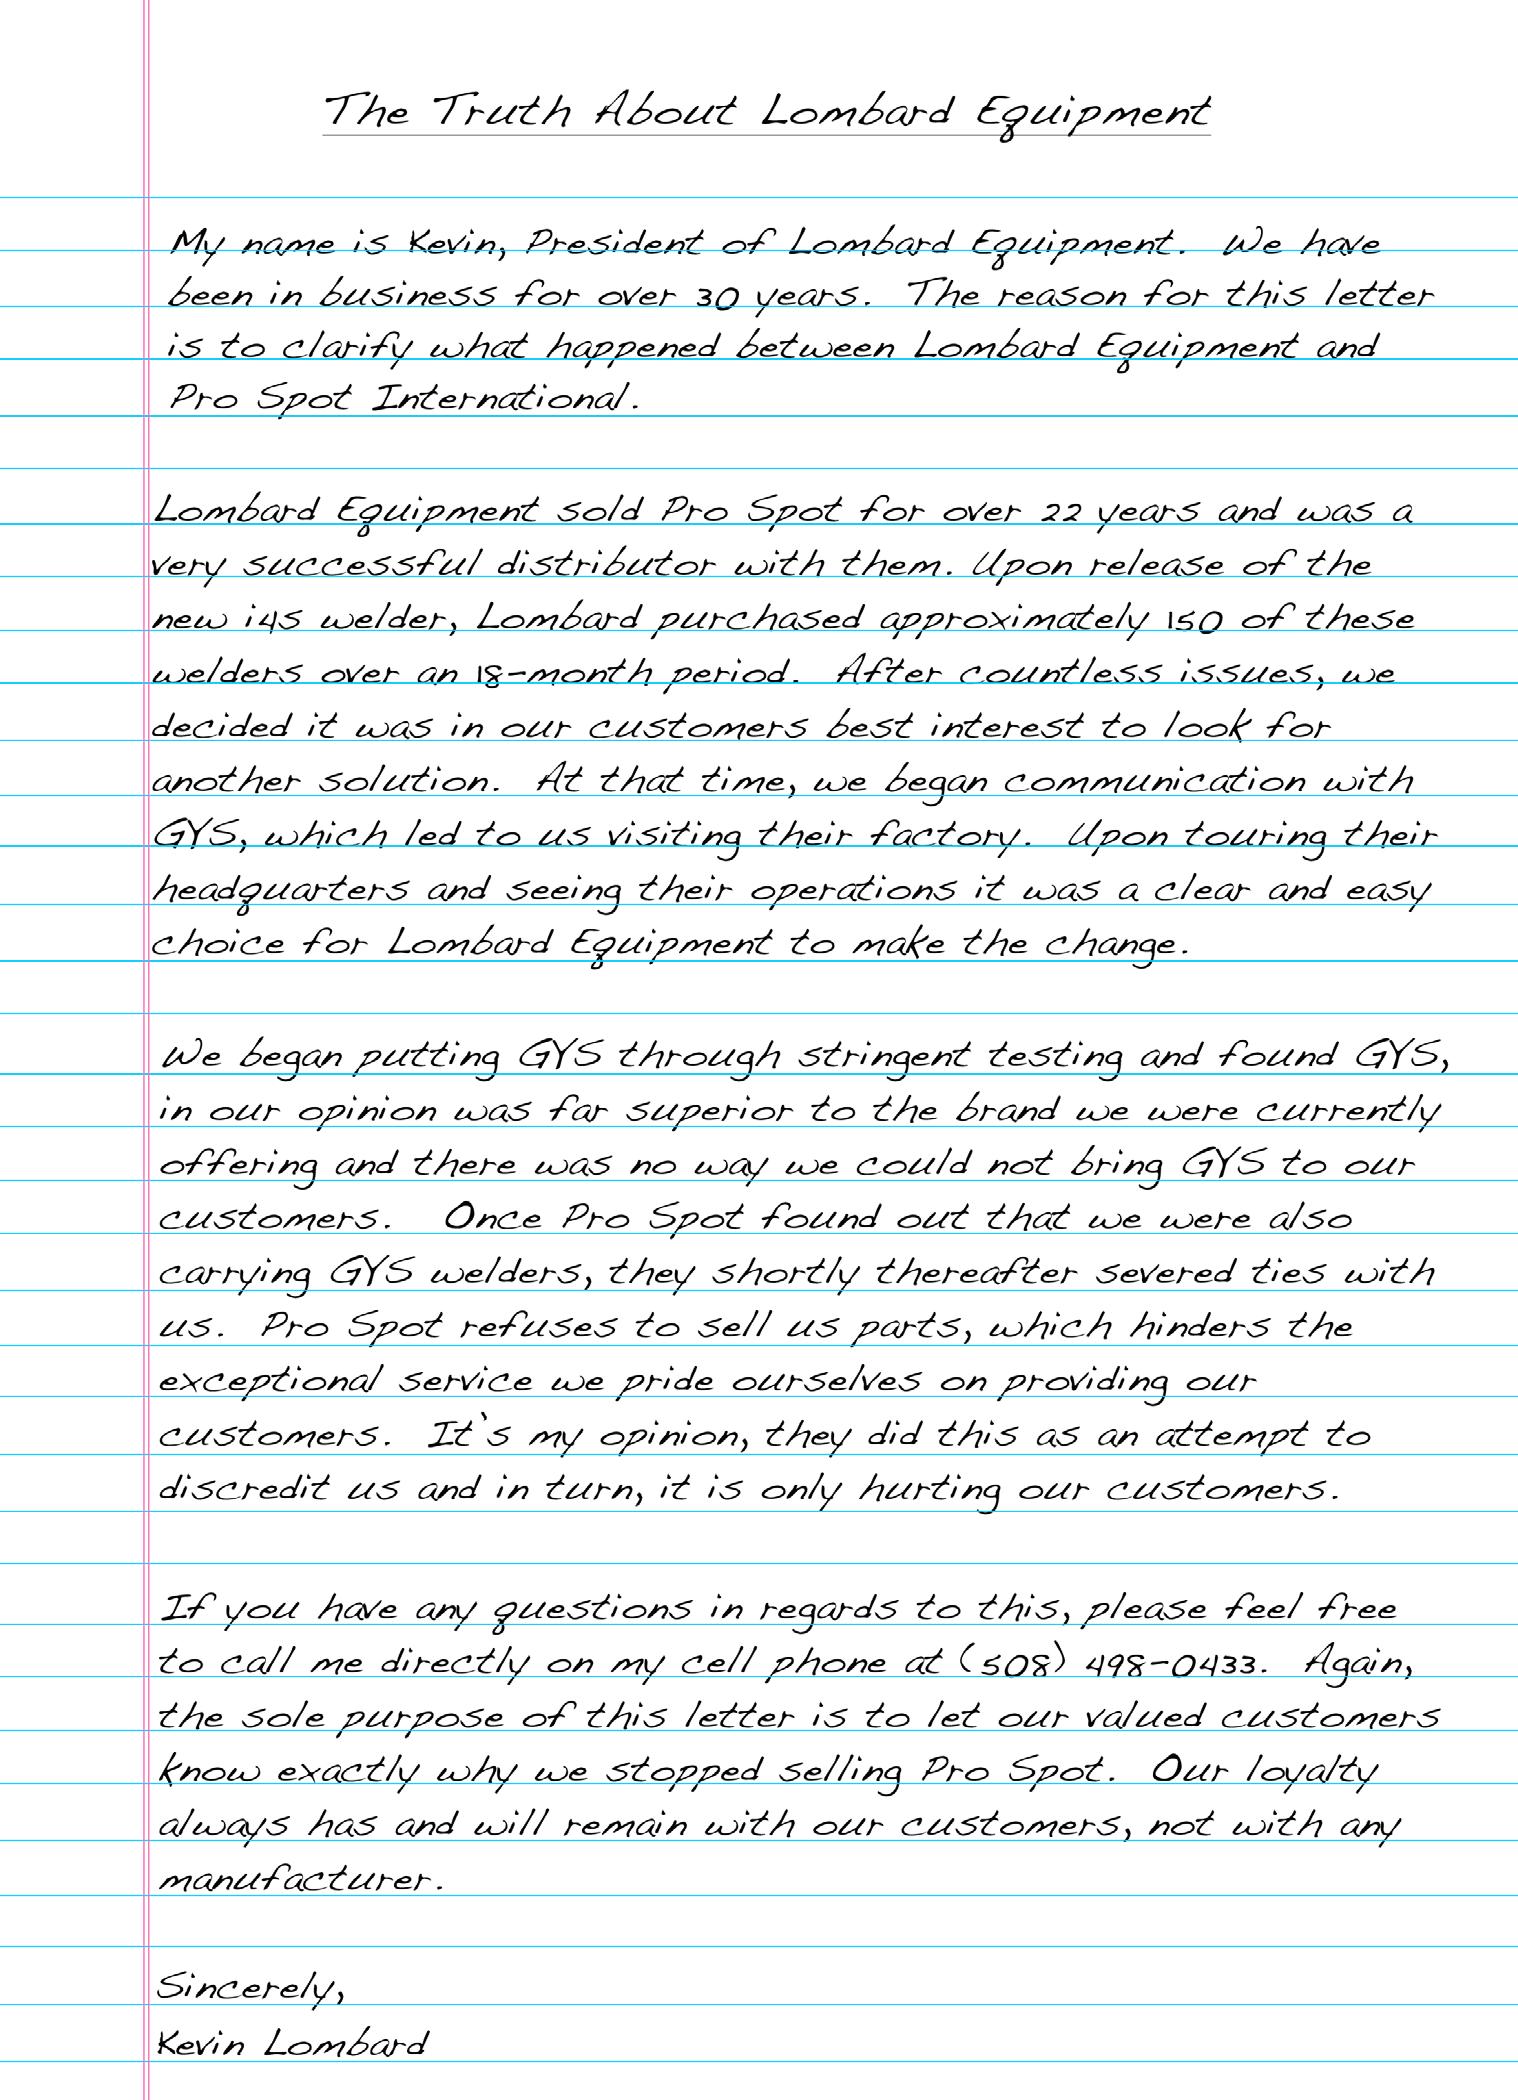 The Truth About Lombard Equipment
My name is Kevin, President of Lombard Equipment. We have
been in business for over 30 years. The reason for this letter
is to clarify what happened between Lombard Equipment and
Pro Spot International.
Lombard Equipment sold Pro Spot for over 22 years and was a
very successful distributor with them. Upon release of the
new i4s welder, Lombard purchased approximately 150 of these
welders over an 18-month period. After countless issues, we
decided it was in our customers best interest to look for
another solution. At that time, we began communication with
GYS, which led to us visiting their factory. Upon touring their
headquarters and seeing their operations it was a clear and easy
choice for Lombard Equipment to make the change.
We began putting GYS through stringent testing and found GYS,
in our opinion was far superior to the brand we were currently
offering and there was no way we could not bring GYS to our
customers. Once Pro Spot found out that we were also
carrying GYS welders, they shortly thereafter severed ties with
us. Pro Spot refuses to sell us parts, which hinders the
exceptional service we pride ourselves on providing our
customers. It's my opinion, they did this as an attempt to
discredit us and in turn, it is only hurting our customers.
If you have any questions in regards to this, please feel free
to call me directly on my cell phone at (508) 498-0433. Again,
the sole purpose of this letter is to let our valued customers
know exactly why we stopped selling Pro Spot. Our loyalty
always has and will remain with our customers, not with any
manufacturer.
Sincerely,
Kevin Lombard